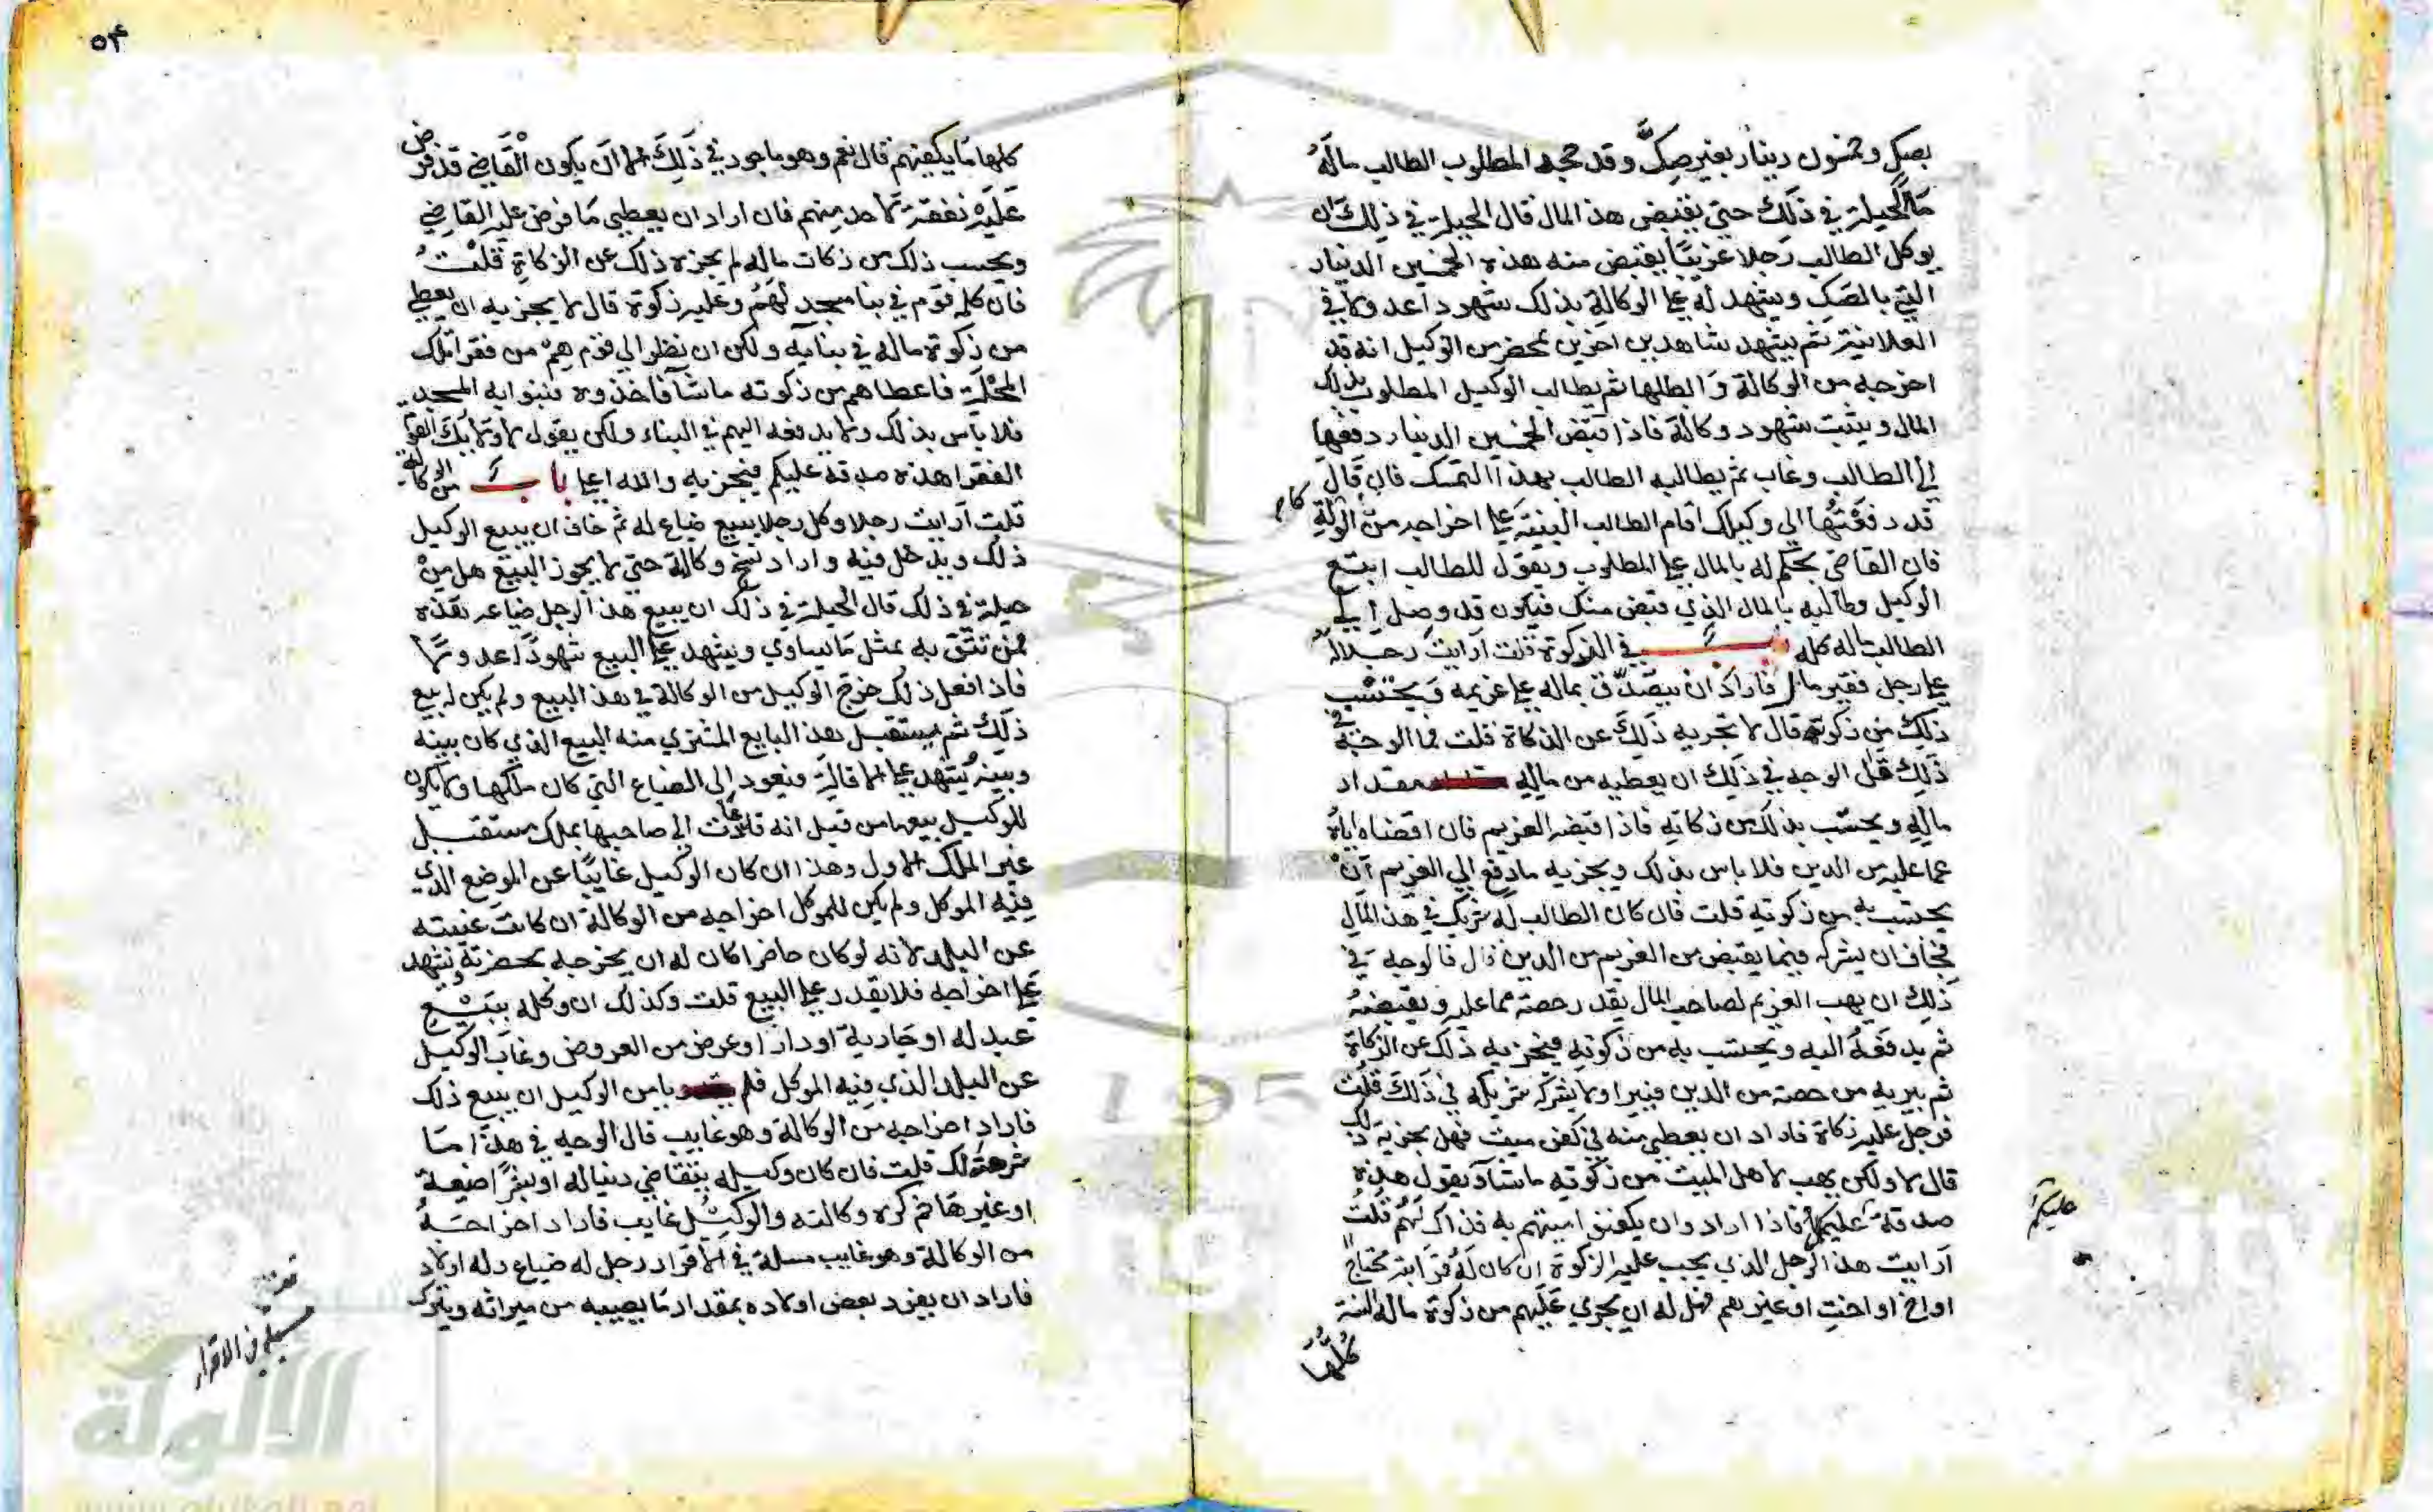 بصك وخمسون دينار بغير صكّ وقد جحد المطلوب الطالب مالهُ
مَا الحيلة في ذلك حتى يقبض هذا المال قال الحيلة في ذلك ان
يوكل الطالب رَجلا غريبًا يقبض منه هذه الخمسين الدينار
التي بالصك ويشهد له على الوكالة بذلك شهودا عدولا في
العلانية ثم يشهد شاهدين اخرين بمحضر من الوكيل انه قد
اخرجه من الوكالة وابطلها ثم يطالب الوكيل المطلوب بذلك
المال ويثبت شهود وكالة فاذا قبض الخمسين الدينار دفعها
الى الطالب وغاب ثم يطالبه الطالب بهذا التمسك فان قال
قد دفعتها الى وكيلك اقام الطالب البينة على اخراجه من الولة كا
فان القاضي يحكم له بالمال على المطلوب ويقول للطالب اتبع
الوكيل وطالبه بالمال الذي قبض منك فيكون قد وصل الى
الطالب ماله كله باب في الزكوة قلت ارايت رجلا له
على رجل فقير مال فاراد ان يتصدق بماله على غريمه ويحتسب
ذلك من زكوته قال لا تجزيه ذلك عن الزكاة قلت فما الوجه في
ذلك قال الوجه في ذلك ان يعطيه من ماله مقداد
ماله ويحتسب بذلك من زكاته فاذا قبضه الغريم فان اقضاه اياه
عما عليه من الدين فلا باس بذلك ويجزيه ما دفع الى الغريم ان
يحتسب به من زكوته قلت فان كان الطالب له شريك في هذا المال
فخاف ان يشركه فيما يقبض من الغريم من الدين قال فالوجه في
ذلك ان يهب الغريم لصاحب المال بقدر حصته مما عليه ويقبضهُ
ثم يدفعه اليه ويحتسب به من زكوته فيجزيه ذلك عن الزكاة
ثم يبريه من حصته من الدين فيبرا ولا يشركه شريكه في ذلك قلت
فرجل عليه زكاة فاراد ان يعطي منه في كفن ميت فهل يجزيه ذلك
قال لا ولكن يهب لاهل الميت من زكوته ماشا ويقول هذه
صدقة عليكم فاذا ارادوان يكفنوا ميتهم به فذاك لهم قلت
ارايت هذا الرجل الذي يجب عليه الزكوة ان كان له قرابة محتاج
او اخ او اخت او غيرهم فهل له ان يجري عليهم من زكوة ماله السنة
كلها
عليكم
٥٤
كلها ما يكفيهم قال نعم وهو ماجود في ذلك الا ان يكون القاضي قد فرض
عليه نفقة لاحد منهم فان اراد ان يعطي ما فرض عليه القاضي
ويحسب ذلك من زكات ماله لم يجزه ذلك عن الزكاة قلت
فان كلمه قوم في بنا مسجد لهم وعليه زكوة قال لا يجزيه ان يعطي
من زكوة ماله في بنايه ولكن ان نظر الى قوم هم من فقرا تلك
المحلة فاعطاهم من زكوته ماشا فاخذوه فبنوا به المسجد
فلا باس بذلك ولا يدفعه اليهم في البناء ولكن يقول لاولايك القوم
الفقرا هذه صدقة عليكم فيجزيه والله اعلم باب من الوكالة
قلت ارايت رجلا وكل رجلا ببيع ضياع له ثم خاف ان يبيع الوكيل
ذلك ويدخل فيه واراد فسخ وكالة حتى لا يجوز البيع هل من
حيلة في ذلك قال الحيلة في ذلك ان يبيع هذا الرجل ضياعه بعده
ممن تثق به بمثل ما يساوي ويشهد على البيع شهودًا عدولا
فاذا فعل ذلك خرج الوكيل من الوكالة في هذا البيع ولم يكن له بيع
ذلك ثم يستقيل هذا البايع المشتري منه البيع الذي كان بينه
وبينه يُشهد على الاقالة فيعود الى الضياع التي كان ملكها ولا يكون
للوكيل بيعها من قبل انه قد عادت الى صاحبها بملك مستقبل
غير الملك الاول وهذا ان كان الوكيل غايبًا عن الموضع الذي
فيه الموكل ولم يكن للموكل اخراجه من الوكالة ان كانت غيبته
عن البلد لانه لو كان حاضرا كان له ان يخرجه بحضرته ويشهد
على اخراجه فلا يقدر على البيع قلت وكذلك ان وكله ببيع
عبد له او جارية او دار او عرض من العروض وغاب الوكيل
عن البلد الذي فيه الموكل فلم يامن الوكيل ان يبيع ذلك
فاراد اخراجه من الوكالة وهو غايب قال الوجه في هذا ما
شرحته لك قلت فان كان وكيله بتقاضي دينا له او ضيعة
او غيرها ثم كره وكالته والوكيل غايب فاراد اخراجه
من الوكالة وهو غايب مسلة في الاقرار رجل له ضياع وله اولاد
فاراد ان يفرد بعض اولاده بمقدار ما يصيبه من ميراثه ويترك
مسلة في الاقرار
الألوكة